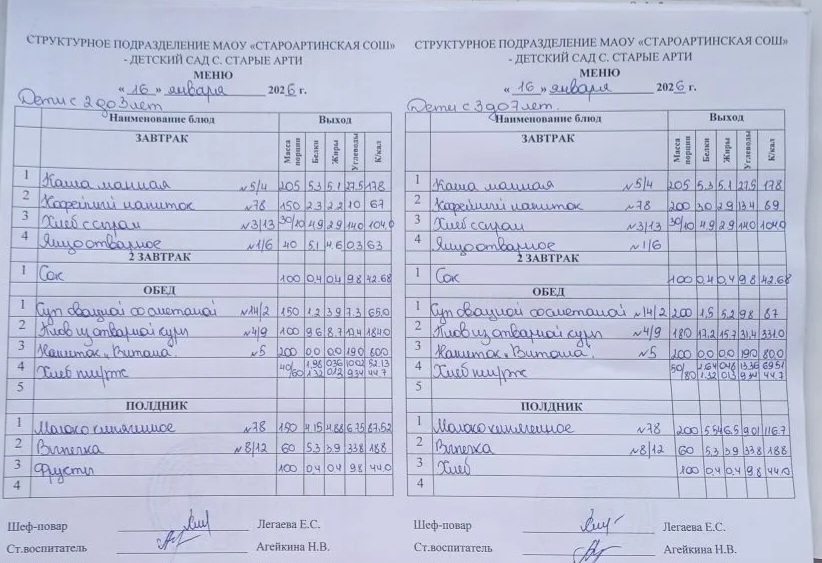 СТРУКТУРНОЕ ПОДРАЗДЕЛЕНИЕ МАОУ «СТАРОАРТИНСКАЯ СОШ»
- ДЕТСКИЙ САД С. СТАРЫЕ АРТИ
МЕНЮ
« 16 » января 2026 г.
Дети с 2 до 3 лет
Наименование блюд Выход
ЗАВТРАК Масса порции Белки Жиры Углеводы К/кал
1 Каша манная №5/4 205 5,3 5,1 27,5 178
2 Кофейный напиток №78 150 2,3 2,2 10 67
3 Хлеб с сыром №3/13 30/10 4,9 2,9 14,0 104,0
4 Яйцо отварное №1/6 40 5,1 4,6 0,3 63
2 ЗАВТРАК
1 Сок 100 0,4 0,4 9,8 42.68
ОБЕД
1 Суп овощной со сметаной №14/2 150 1,2 3,9 7,3 65,0
2 Плов из отварной куры №4/9 100 9,6 8,7 17,4 184,0
3 Напиток „Витоша" №5 200 0,0 0,0 19,0 80,0
4 Хлеб пш/рж 40/60 1,98 0,36 10,02 52.13
1.32 0,13 9,34 44.7
5
ПОЛДНИК
1 Молоко кипяченое №78 150 4,15 4,88 6,75 87,52
2 Выпечка №8/12 60 5,3 3,9 33,8 188
3 Фрукты 100 0,4 0,4 9,8 44,0
4
Шеф-повар Легаева Е.С.
Ст.воспитатель Агейкина Н.В.
СТРУКТУРНОЕ ПОДРАЗДЕЛЕНИЕ МАОУ «СТАРОАРТИНСКАЯ СОШ»
- ДЕТСКИЙ САД С. СТАРЫЕ АРТИ
МЕНЮ
« 16 » января 2026 г.
Дети с 3 до 7 лет.
Наименование блюд Выход
ЗАВТРАК Масса порции Белки Жиры Углеводы К/кал
1 Каша манная №5/4 205 5,3 5,1 27,5 178
2 Кофейный напиток №78 200 3,0 2,9 13,4 89
3 Хлеб с сыром №3/13 30/10 4,9 2,9 14,0 104,0
4 Яйцо отварное №1/6
2 ЗАВТРАК
1 Сок 100 0,4 0,4 9,8 42.68
ОБЕД
1 Суп овощной со сметаной №14/2 200 1,5 5,2 9,8 87
2 Плов из отварной куры №4/9 180 17,2 15,7 31,4 331,0
3 Напиток „Витоша" №5 200 0,0 0,0 19,0 80,0
4 Хлеб пш/рж 50/80 2,64 0,48 13,36 69,51
1.32 0,13 9,34 44.7
5
ПОЛДНИК
1 Молоко кипяченое №78 200 5,54 6,5 9,01 116,7
2 Выпечка №8/12 60 5,3 3,9 33,8 188
3 Хлеб 100 0,4 0,4 9,8 44,0
4
Шеф-повар Легаева Е.С.
Ст.воспитатель Агейкина Н.В.